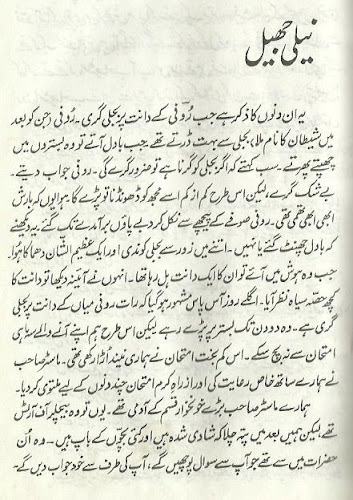 نیلی جھیل
یہ ان دنوں کا ذکر ہے جب رُوفی کے دانت پر بجلی گری۔ روفی (جن کو بعد
میں شیطان کا نام ملا، بجلی سے بہت ڈرتے تھے۔ جب بادل آتے تو وہ بستروں میں
چھپتے پھرتے۔ سب کہتے کہ اگر بجلی کو گرنا ہے تو ضرور گرے گی۔ روفی جواب دیتے۔
بے شک گرے، لیکن اس طرح کم از کم اسے مجھ کو ڈھونڈنا تو پڑے گا۔ ہوا یوں کہ بارش
ابھی ابھی تھمی تھی۔ روفی صوفے کے پیچھے سے نکل کر دبے پاؤں برآمدے تک گئے۔ یہ دیکھنے
کہ بادل چھنٹ گئے یا نہیں۔ اتنے میں زور سے بجلی کوندی اور ایک عظیم الشان دھماکا ہوا۔
جب وہ ہوش میں آئے تو ان کا ایک دانت ہل رہا تھا۔ انہوں نے آئینہ دیکھا تو دانت کا
کچھ حصّہ سیاہ نظر آیا۔ اگلے روز آس پاس مشہور ہو گیا کہ رات روفی میاں کے دانت پر بجلی
گری ہے۔ وہ دو دن تک بستر پر پڑے رہے لیکن اس طرح ہم اپنے آنے والے سہ ماہی
امتحان سے نہ بچ سکے۔ اس کم بخت امتحان نے ہماری نیند اُڑا رکھی تھی۔ ماسٹر صاحب
نے ہمارے ساتھ خاص رعایت کی اور از راہ کرم امتحان چند دنوں کے لیے ملتوی کر دیا۔
ہمارے ماسٹر صاحب بڑے خونخوار قسم کے آدمی تھے۔ یوں تو وہ بیچلر آف آرٹس
تھے، لیکن ہمیں بعد میں پتہ چلا کہ شادی شدہ ہیں اور کئی بچّوں کے باپ ہیں۔ وہ اُن
حضرات میں سے تھے جو آپ سے سوال پوچھیں گے، آپ کی طرف سے خود جواب دیں گے۔